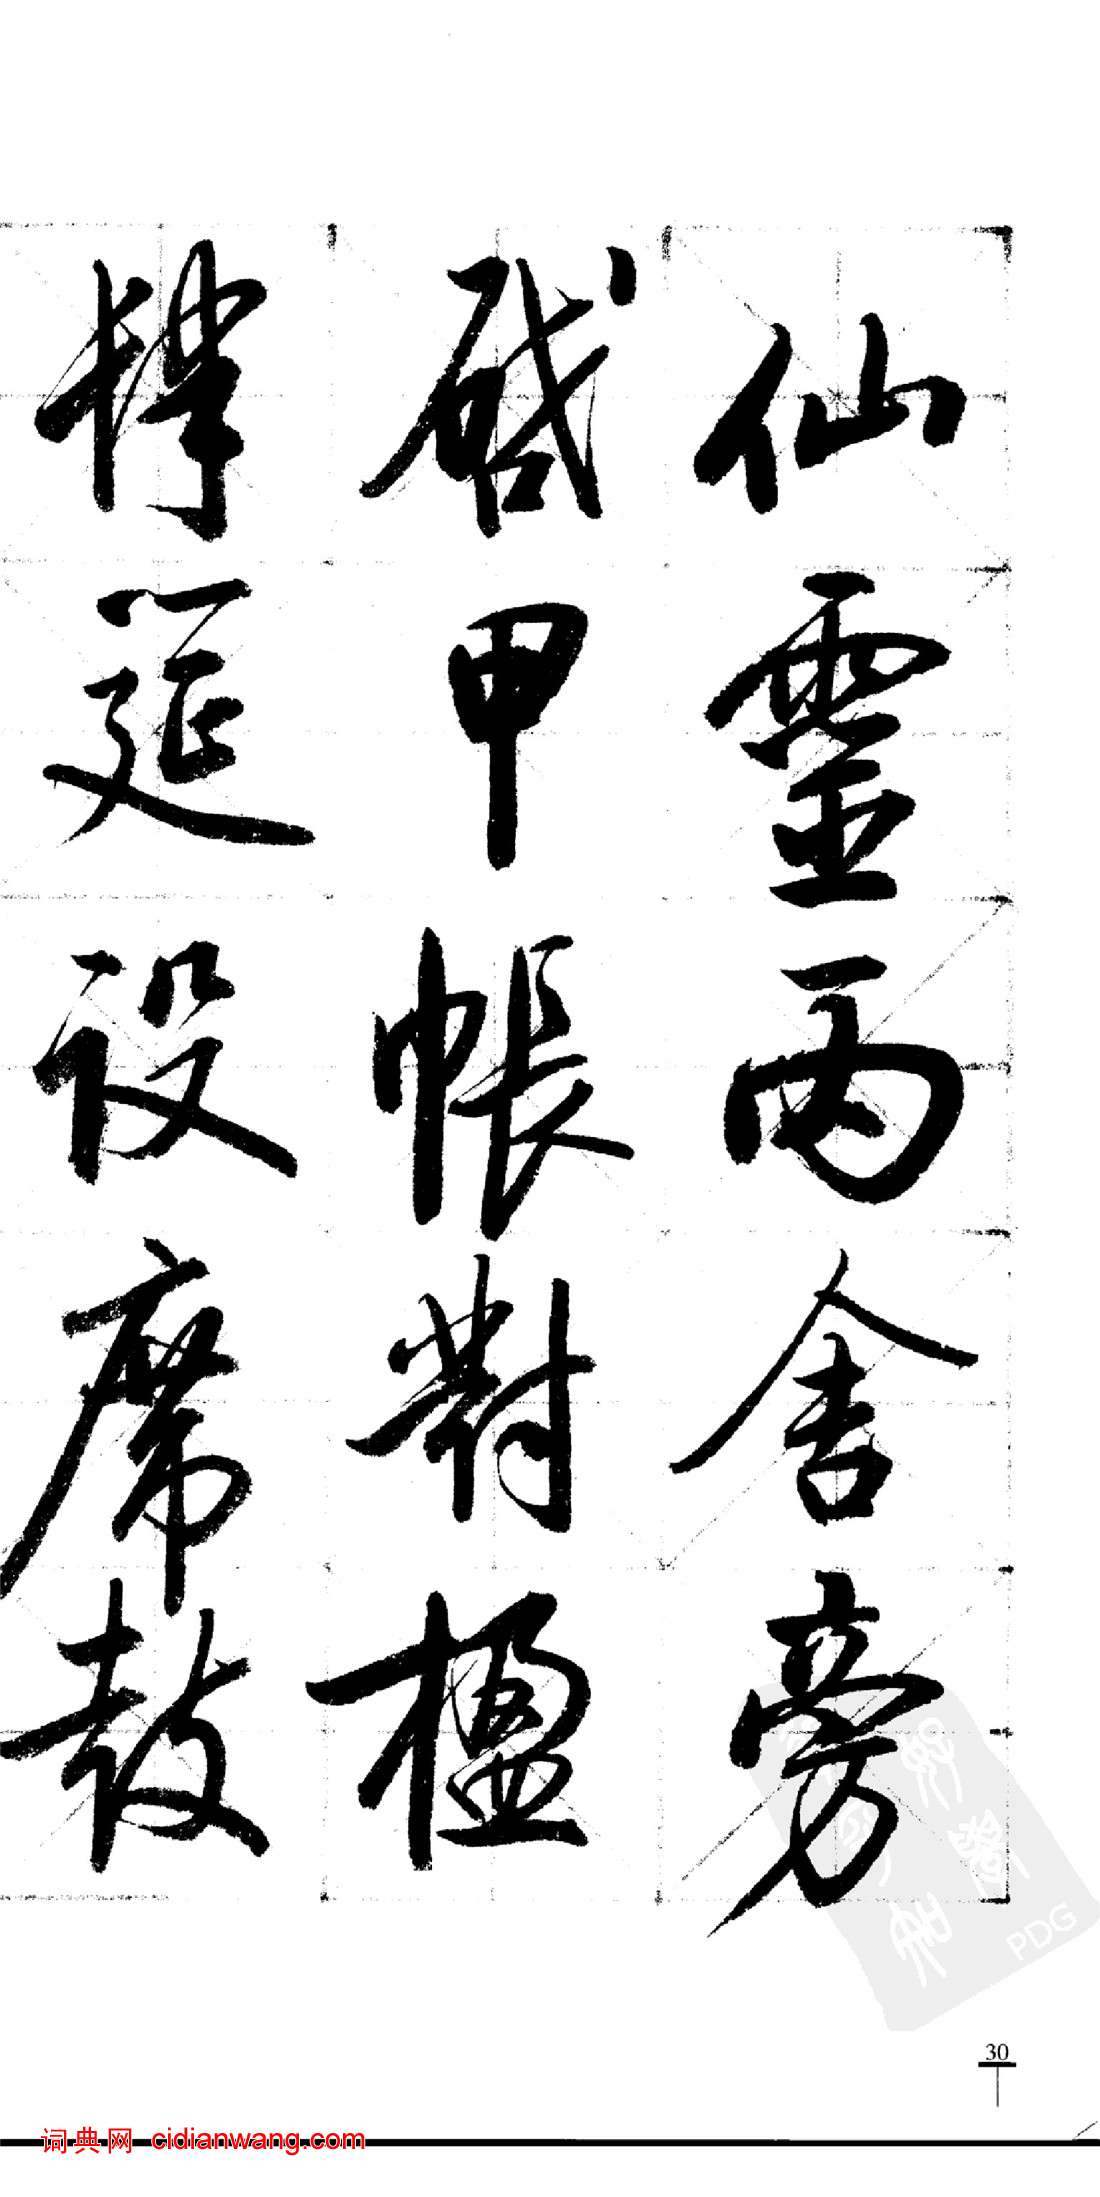 仙靈丙舍旁
啟甲帳對楹
肆筵設席鼓
30
词典网 cidianwang.com
PDG